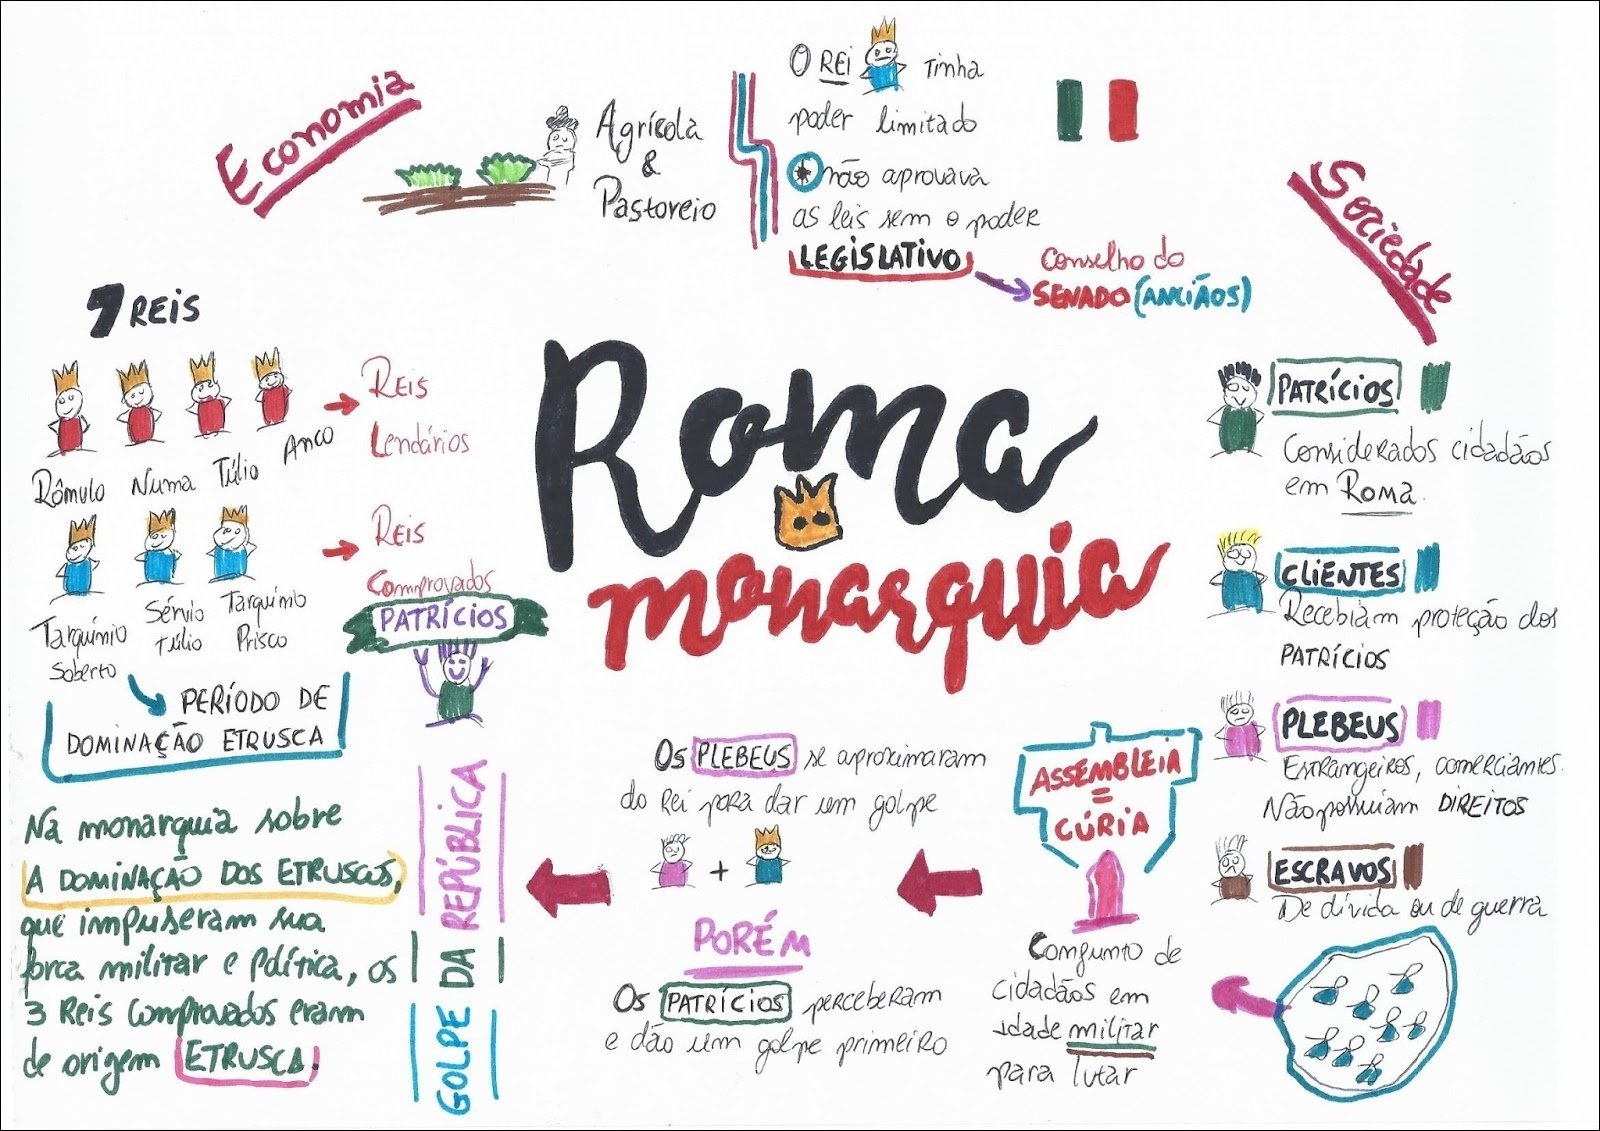 Economia
Agrícola
&
Pastoreio
O REI tinha
poder limitado
* não aprovava
as leis sem o poder
LEGISLATIVO
Conselho do
SENADO (ANCIÃOS)
Sociedade
7 REIS
Rômulo Numa Túlio Anco
Reis
Lendários
Tarquínio
Soberto
Sérvio
Túlio
Tarquínio
Prisco
Reis
Comprovados
PERÍODO DE
DOMINAÇÃO ETRUSCA
Roma
monarquia
PATRÍCIOS
Considerados cidadãos
em ROMA.
CLIENTES
Recebiam proteção dos
PATRÍCIOS
PLEBEUS
Estrangeiros, comerciantes.
Não possuiam DIREITOS
ESCRAVOS
De dívida ou de guerra
ASSEMBLEIA
=
CÚRIA
Conjunto de
cidadãos em
idade militar
para lutar
Os PLEBEUS se aproximaram
do rei para dar um golpe
+
PORÉM
Os PATRÍCIOS perceberam
e dão um golpe primeiro
PATRÍCIOS
GOLPE DA REPÚBLICA
Na monarquia sobre
A DOMINAÇÃO DOS ETRUSCOS,
que impuseram sua
força militar e política, os
3 Reis Comprovados eram
de origem ETRUSCA.